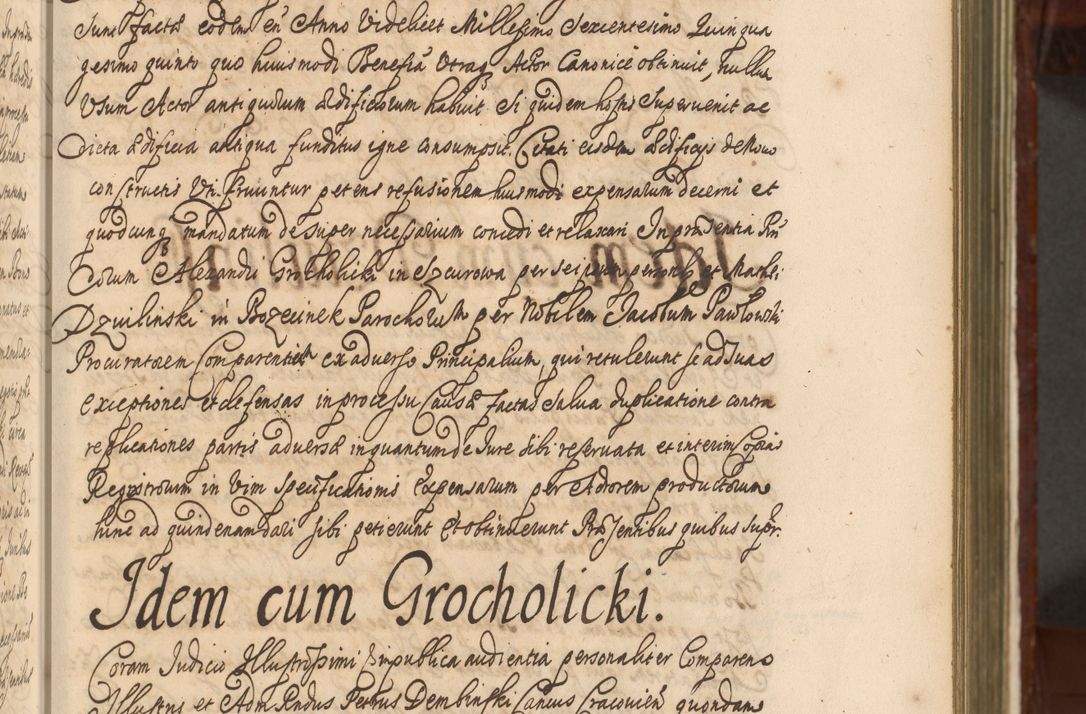 Sunt facta eodem en Anno Videlicet Millesimo Sexcentesimo Quinqua
gesimo quinto quo huiusmodi Benefia Utraq Actor Canonice obtinuit, nulluq
Usum Actor antiquorum ædificiorum habuit Si quidem hostis Superuenit ac
dicta ædificia antiqua funditus igne consumpsit. Citati eisdem ædificys de Nouo
constructis Uti fruuntur petens refusionem huiusmodi expensarum decerni et
quodcunq mandatum desuper necessarium concedi et relaxari In præsentia
Alexandri Grocholicki in Szcurowa per se ipsum personl et Mathi
Dzwilinski in Bozecinek Parochorum per Nobilem Jacobum Pawlowski
Procuratorem Comparentes ex aduerso Principalium, qui retulerunt se ad Suas
exceptiones et defensas in processu Causæ factas Salua duplicatione contra
replicationes partis aduersæ in quantum de Jure sibi reseruata et interim Copias
Regestrorum in Vim Specificationis Expensarum per Actorem productorum
hinc ad quindenam dari sibi petierunt Et obtinuerunt Præsentibus quibus supr.
Idem cum Grocholicki.
Coram Judicio Illustrissimi in publica audientia personaliter Comparens
Illustris et Adm Rendus Petrus Dembinski Cancus Cracouien quondam